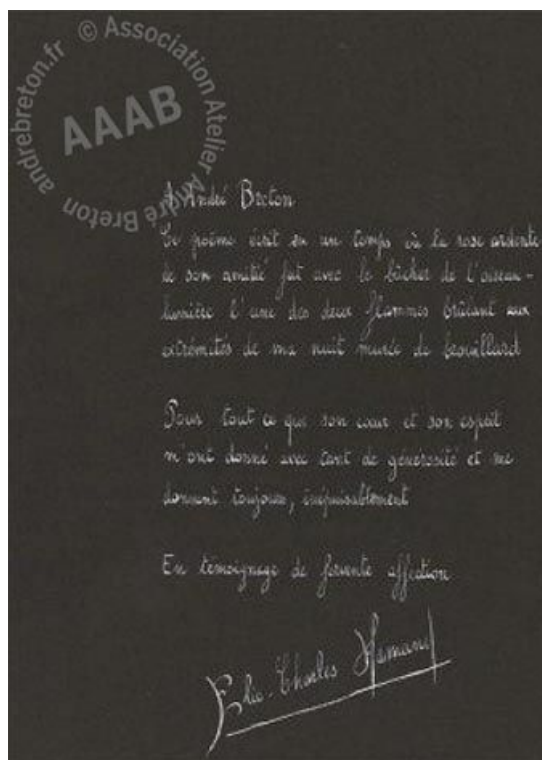 andrebreton.fr © Association Atelier André Breton
AAAB
A André Breton
Ce poème écrit en un temps où la rose ardente
de son amitié fut avec le bûcher de l'oiseau-
lumière l'une des deux flammes brûlant aux
extrémités de ma nuit murée de brouillard
Pour tout ce que son cœur et son esprit
m'ont donné avec tant de générosité et me
donnent toujours, inépuisablement
En témoignage de fervente affection
Elie-Charles Flamand